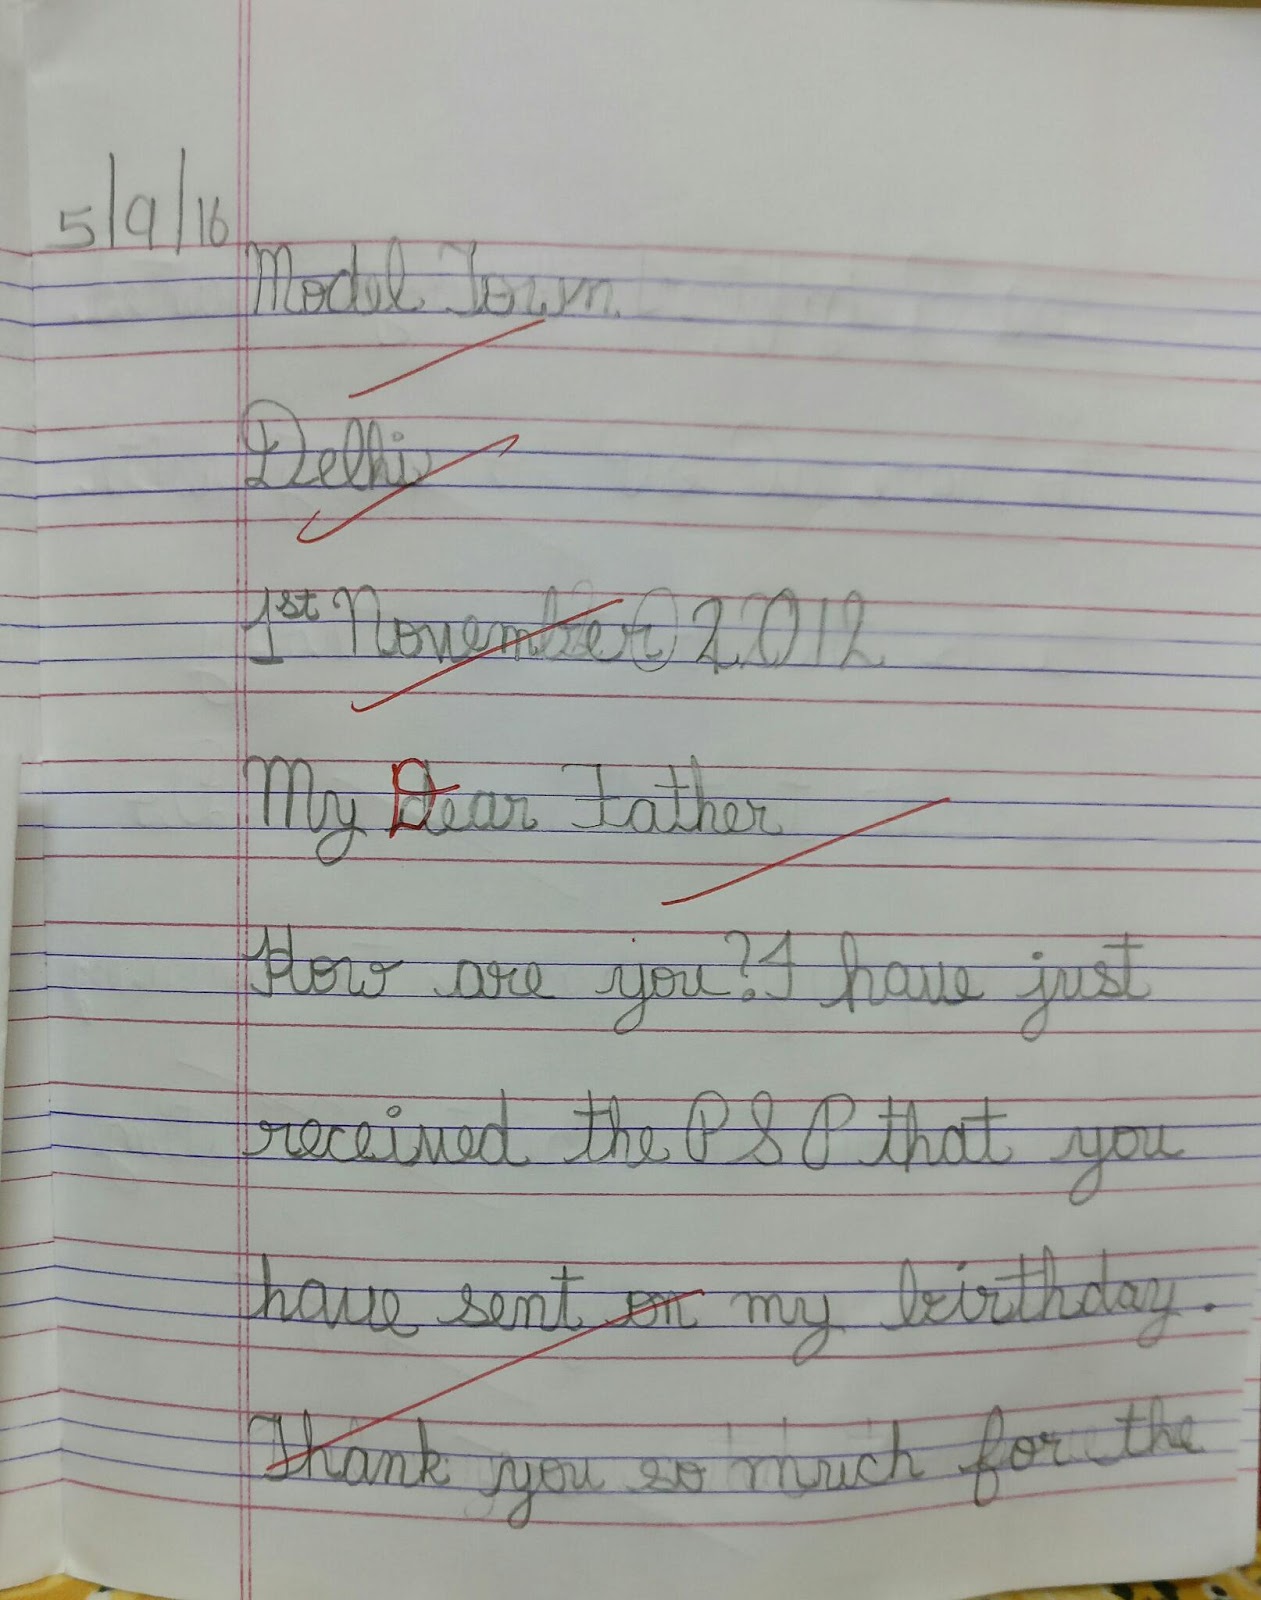 5/9/16
Model Town
Delhi
1st November 2012
My Dear Father
How are you? I have just
received the PSP that you
have sent on my birthday.
Thank you so much for the